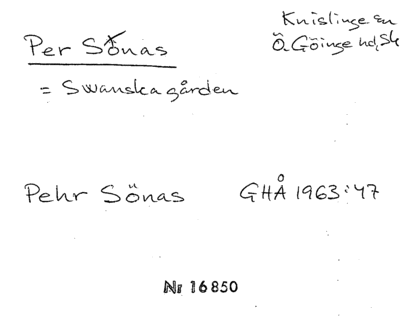 Per Sönas
Knislinge sn
Ö. Göinge hd, Sk
= Swanskagården
Pehr Sönas GHÅ 1963:47
Nr 16850